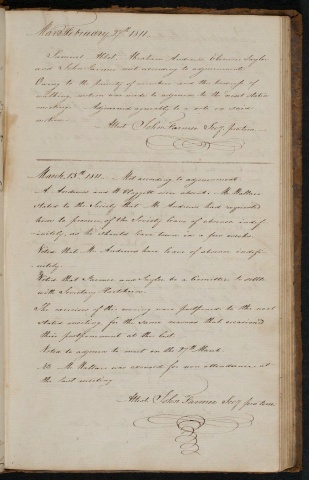 February 27th 1811.
Samuel Abbot, Abraham Andrews, Ebenezer Taylor
and John Farmer met according to adjournment.
Owing to the of members and the
walking, voted to adjourn to the next stated
meeting. Adjourned agreeably to a vote as said
before.
Attest John Farmer Secy pro tem
March 13th 1811. Met according to adjournment.
A. Andrews and W. were absent. Mr. Wallace
stated to the Society that Mr. Andrews had requested
him to procure of the Society leave of absence indef-
initely, as he should leave town in a few weeks.
Voted that Mr. Andrews have leave of absence indefi-
nitely.
Voted that Farmer and Taylor be a Committee to settle
with Secretary
The exercises of this evening were postponed to the next
stated meeting for the same reasons that occasioned
their postponement at the last.
Voted to adjourn to meet on the 27th March.
Mr. Wallace was excused for non attendance at
the last meeting.
Attest John Farmer Secy pro tem